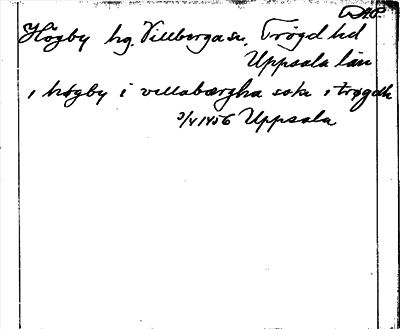 D.A.P.
Högby hg. Villberga sn. Trögd hd
Uppsala län
i høgby i villabærgha sokn i trøgdh
3/4 1456 Uppsala